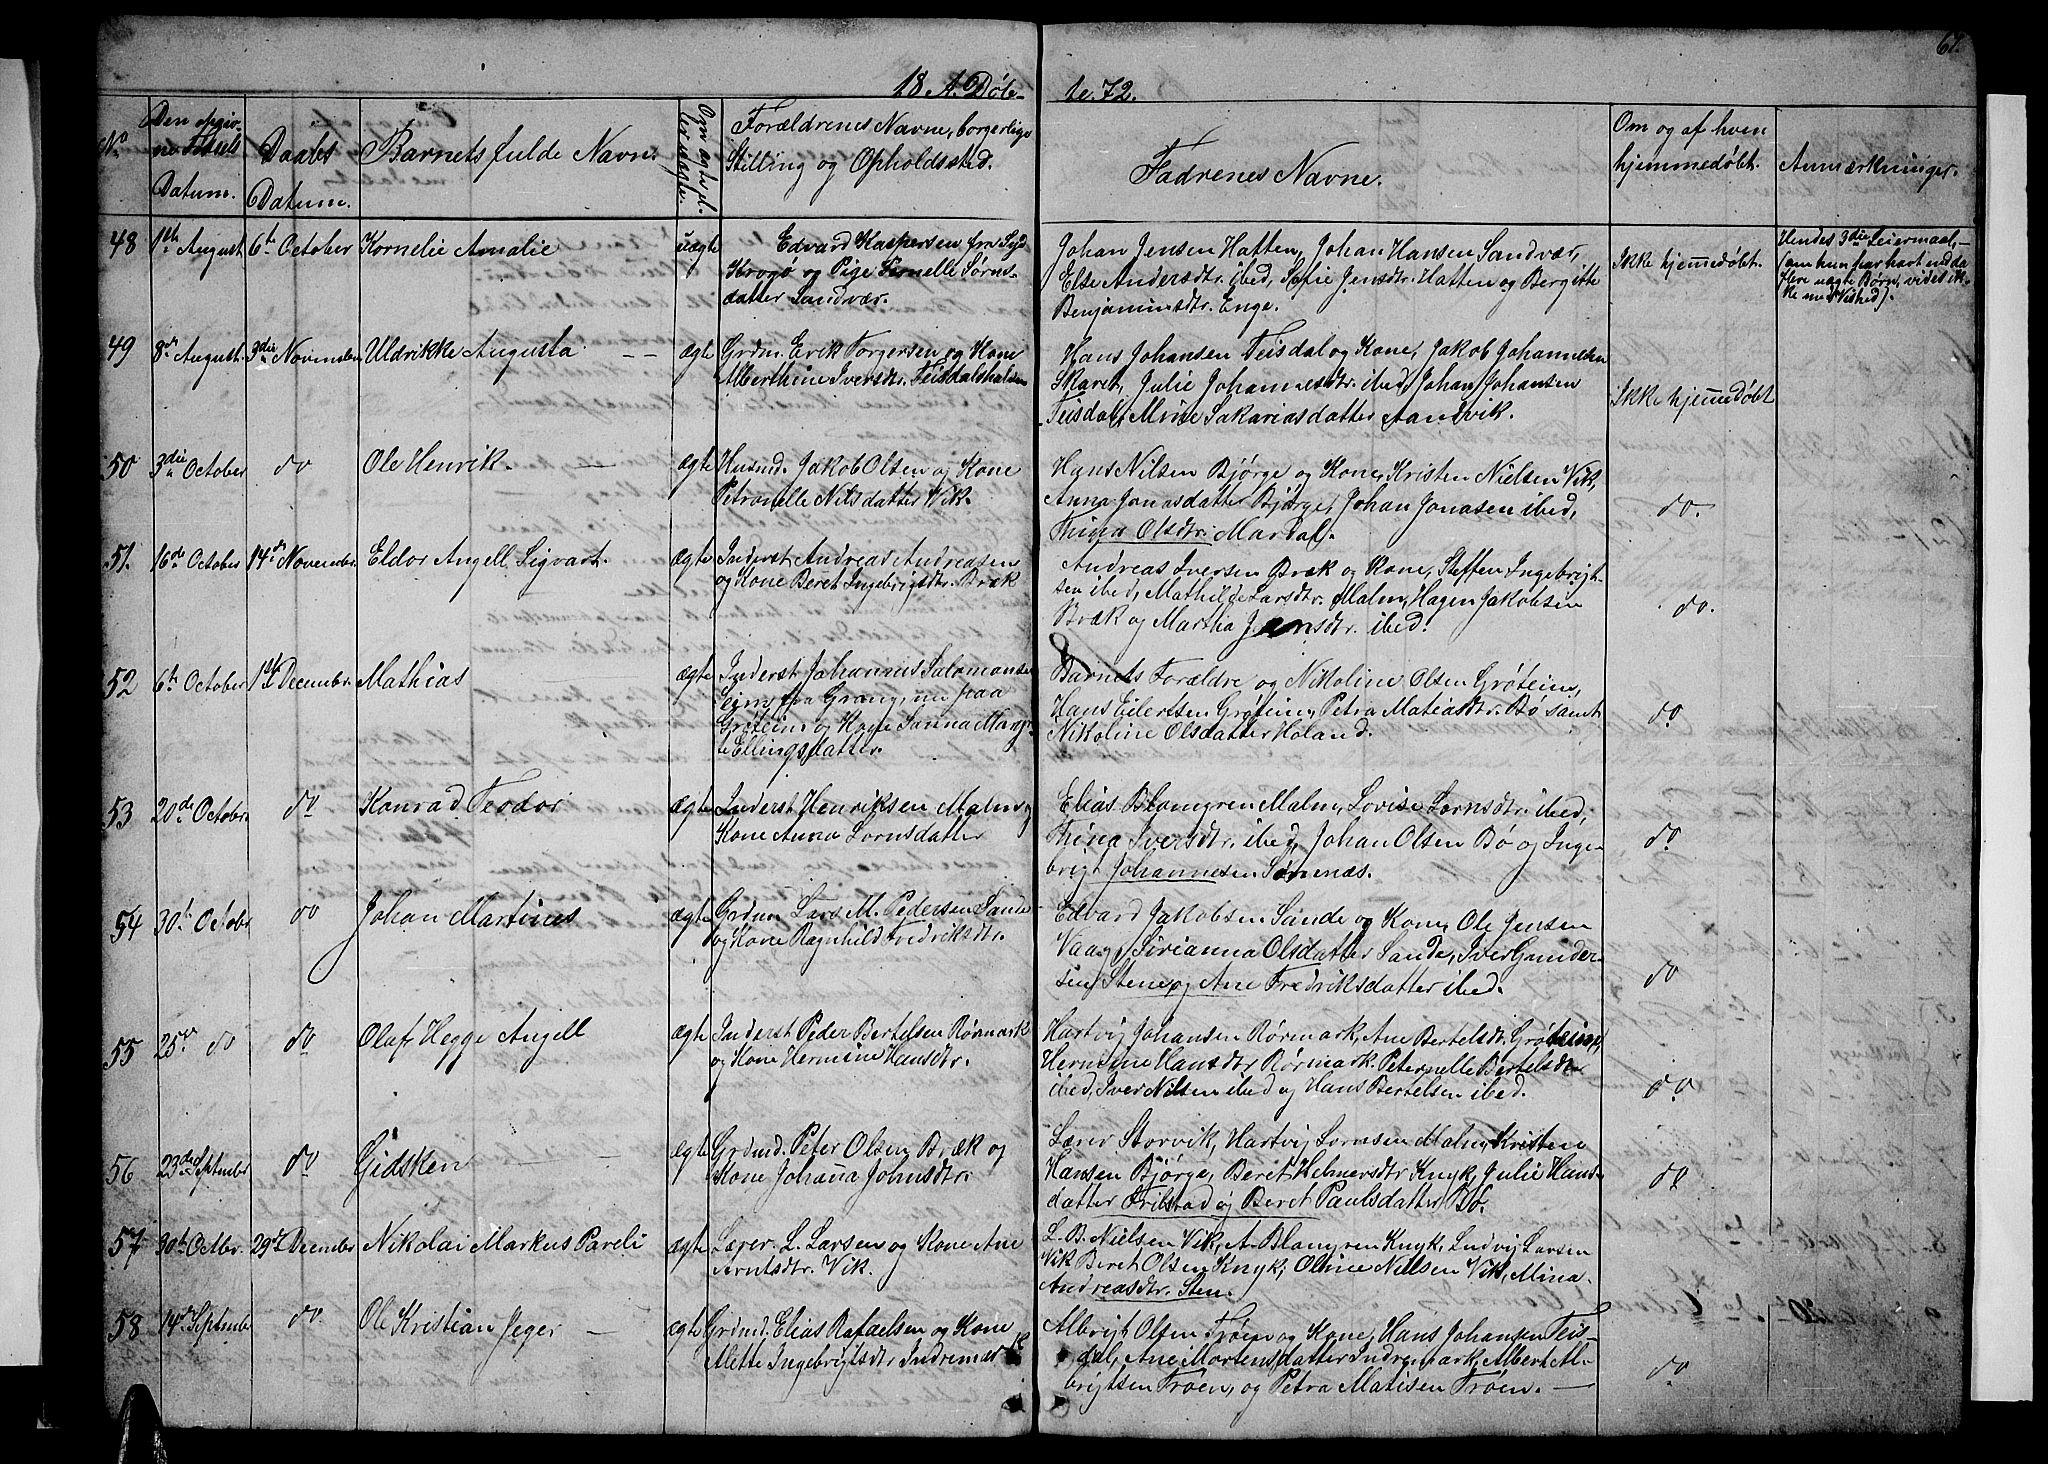 67.
18 A. Døb-
te. 72.
No
Den opgiv-
ne Fødsels
Datum.
Daabs
Datum.
Barnets fulde Navn.
Om ægte el-
ler uægte.
Forældrenes Navne, borgerlige
Stilling og Opholdssted.
Fadrenes Navne.
Om og af hvem
hjemmedøbt.
Anmærkninger.
48 1ste August 6te October Kornelie Amalie uægte Edvard Kaspersen fra Syd
Krogø og Pige Pernelle Sørns-
datter Sandvær.
Johan Jensen Hatten, Johan Hansen Sandvær,
Else Andersdtr. ibed, Sofie Jensdtr. Hatten og Bergitte
Benjaminsdtr. Enge.
Ikke hjemmedøbt.
Hendes 3die Leiermaal,
(om hun har havt endda
flere uægte Børn, vides ik-
ke med Vished).
49 8de August. 3die November Uldrikke Augusta ægte Grdm. Erik Torgersen og Kone
Alberthine Iversdtr. Teisdalshalsen
Hans Johansen Teisdal og Kone, Jakob Johannesen
Skaret, Julie Johannesdtr. ibed, Johan Johansen
Teisdal, Mine Sakariasdatter Aandvik.
Ikke hjemmedøbt
50 3die October do Ole Henrik. ægte Husmd. Jakob Olsen og Kone
Petronelle Nilsdatter Vik.
Hans Nilsen Bjørge og Kone, Kristen Nielsen Vik,
Anna Jonasdatter Bjørge, Johan Jonasen ibed,
Thina Olsdtr. Mardal.
do.
51. 16de October 14de Novembr. Eldor Angell Sigvart. ægte Inderst Andreas Andreasen
og Kone Beret Ingebrigtsdtr. Bræk
Andreas Iversen Bræk og Kone, Steffen Ingebrigt-
sen ibed, Mathilde Larsdtr. Malm, Hagen Jakobsen
Bræk og Martha Jensdtr. ibed.
do.
52 6te October 1ste Decembr. Mathias ægte Inderst Johannes Salomonsen
Eim fra Grang, nu paa
Grøteim og Kone Sanna Margre-
te Ellingsdatter.
Barnets Forældre og Nikoline Olsen Grøteim,
Hans Eilertsen Grøteim, Petra Matiasdtr. Bø samt
Nikoline Olsdatter Holand.
do
53 20de Octobr. do Konrad Teodor ægte Inderst Henriksen Malm og
Kone Anna Lornsdatter
Elias Blomgren Malm, Lovise Lornsdtr. ibed,
Thina Iversdtr. ibed, Johan Olsen Bø og Inge-
brigt Johannesen Sørnæs.
do
54 30te Octobr do Johan Martines ægte Grdm Lars M. Pedersen Sande
og Kone Ragnhild Fredriksdtr.
Edvard Jakobsen Sande og Kone, Ole Jensen
Vaag, Sirianna Olsdatter Sande, Iver Gunder-
sen Stene og Ane Fredriksdatter ibed.
do
55 25de do do Olaf Hegge Angell ægte Inderst Peder Bertelsen Rørmark
og Kone Hermine Hansdtr.
Hartvig Johansen Rørmark, Ane Bertelsdtr. Grøteim,
Hermine Hansdtr Rørmark, Peternelle Bertelsdtr
ibed, Iver Nilsen ibed og Hans Bertelsen ibed.
do
56 23de September do Gidsken ægte Grdmd. Peter Olsen Bræk og
Kone Johanna Johnsdtr.
Lærer Storvik, Hartvig Lornsen Malm, Kristen
Hansen Bjørge, Beret Helmersdtr. Knyk, Julie Hans-
datter Fribstad og Beret Paulsdatter Bø.
do
57 30te Octbr. 29de December Nikolai Markus Pareli ægte Lærer L. Larsen og Kone Ane
Arntsdtr. Vik.
L. B. Nielsen Vik, A. Blomgren Knyk, Ludvig Larsen
Vik, Beret Olsen Knyk, Oline Nielsen Vik, Mina
Andreasdtr. Sten.
58 14de Septembr do Ole Kristian Jeger ægte Grdmd. Elias Rafaelsen og Kone
Alette Ingebrigtsdtr Indremark
Albrigt Olsen Trøen og Kone, Hans Johansen Teis-
dal, Ane Mortensdatter Indremark, Albert Al-
brigtsen Trøen, og Petra Matisen Trøen.
do